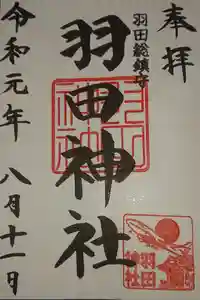 奉拝
羽田総鎮守
羽田神社
令和元年 八月十一日
羽田
神社